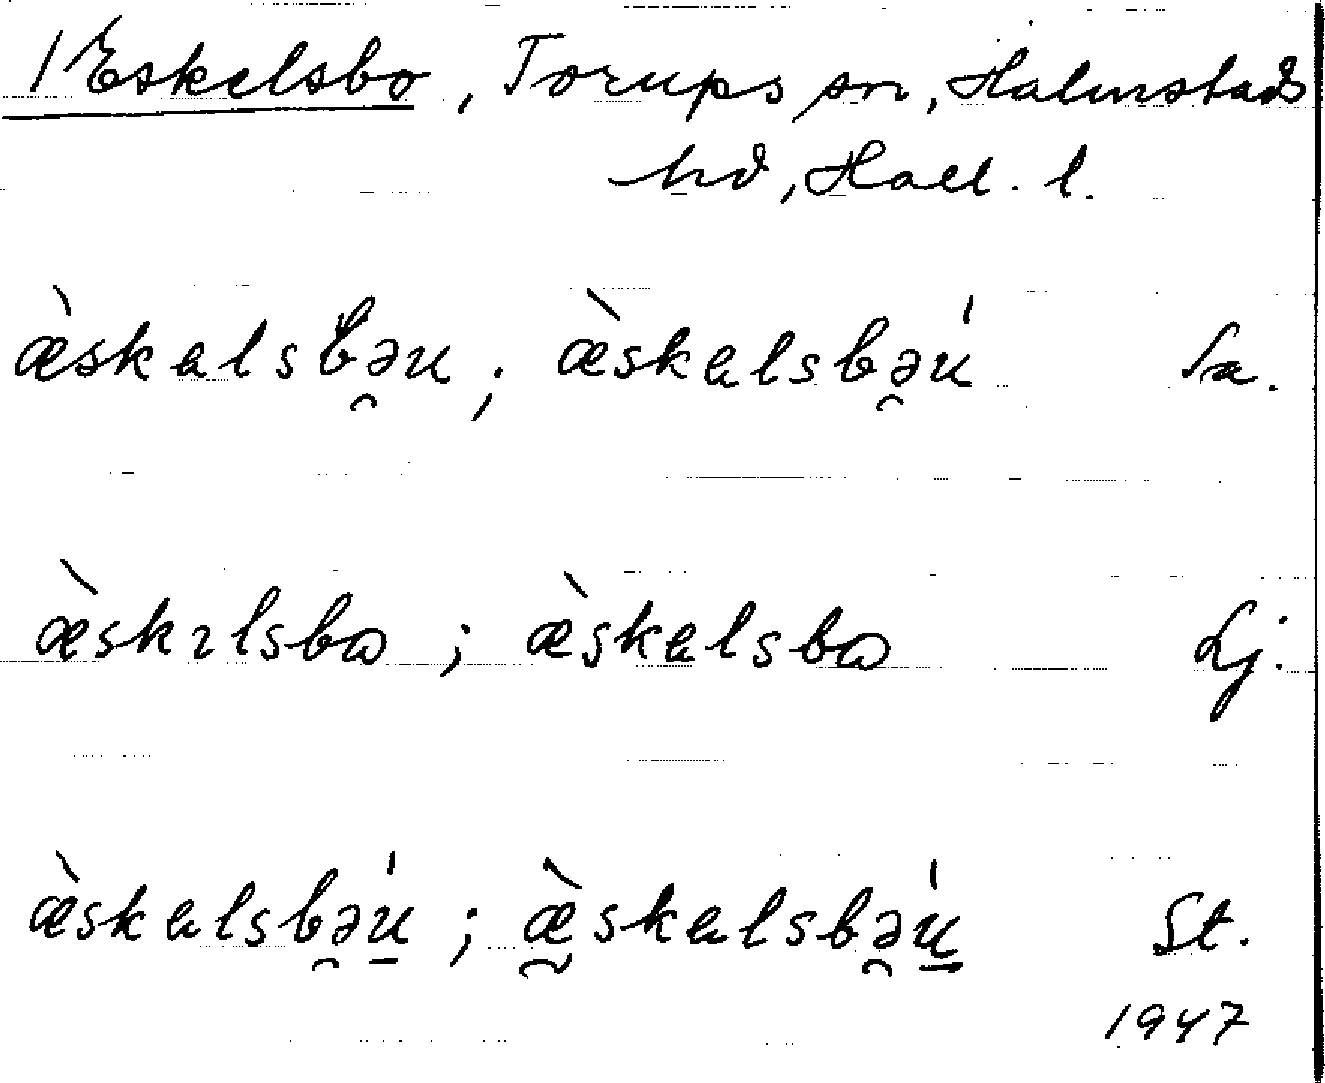 1 Eskelsbo, Torups sn, Halmstads
hd, Hall. l.
æ̀skelsbə̯u; æ̀skelsbə̯ú Sa.
æ̀skɿlsbɷ; æ̀skelsbɷ Lj.
æ̀skelsbə̯ú̲; æ̰̀skelsbə̯ú̲ St.
1947